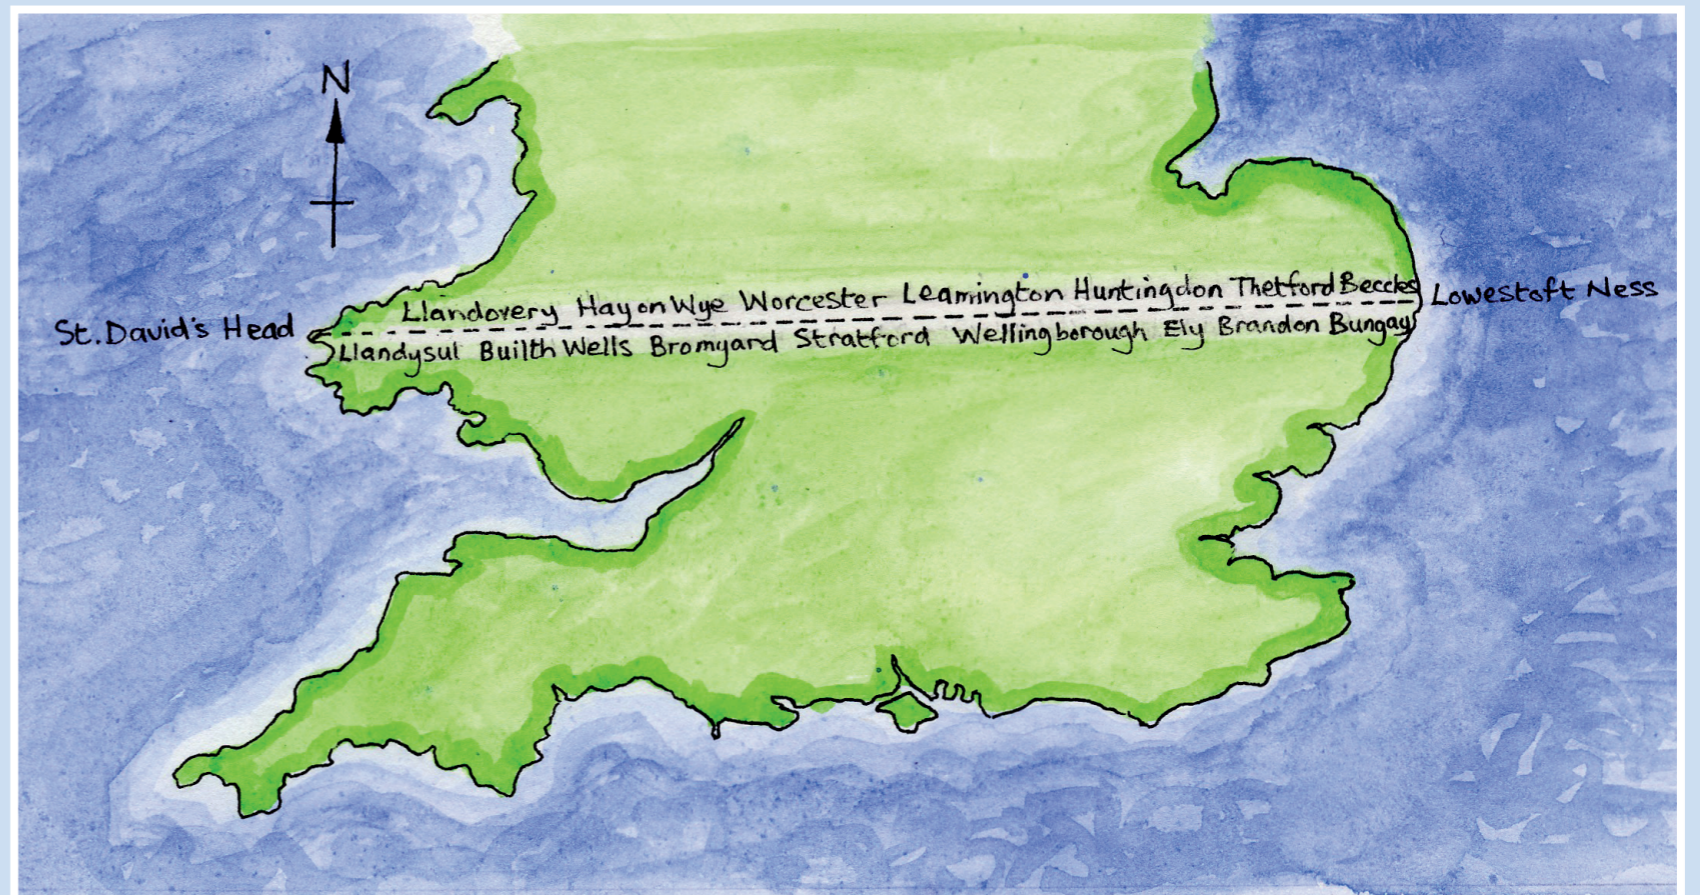 N
Llandovery Hay on Wye Worcester Leamington Huntingdon Thetford Beccles
Lowestoft Ness
St. David's Head
Llandysul Builth Wells Bromyard Stratford Wellingborough Ely Brandon Bungay